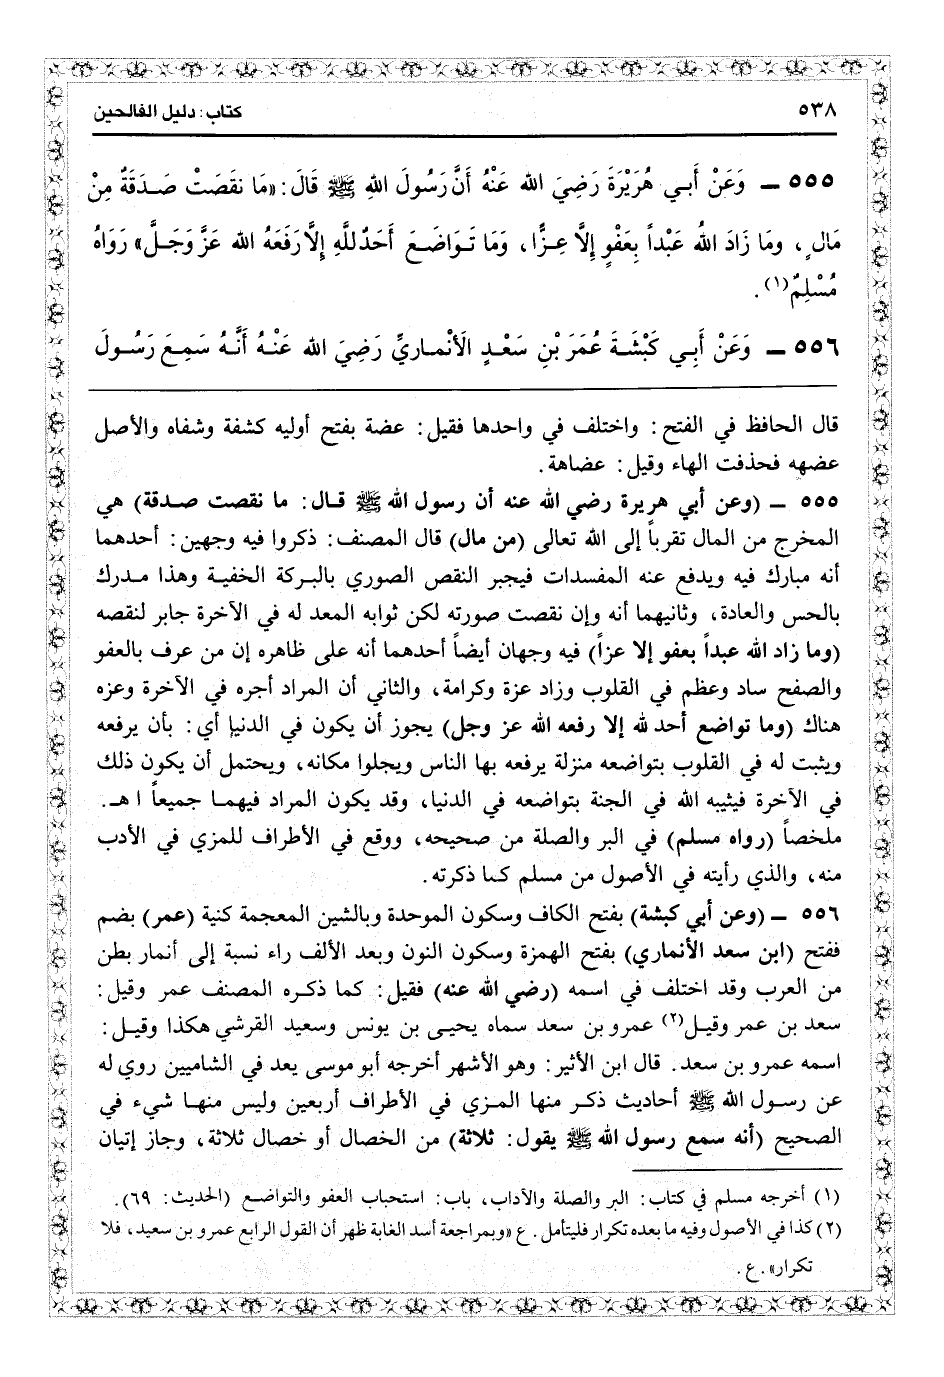 ٥٣٨
كتاب: دليل الفالحين
٥٥٥ ـ وَعَنْ أَبـي هُرَيْرَةَ رَضِيَ الله عَنْهُ أَنَّ رَسُولَ اللهِ ﷺ قَالَ: «مَا نَقَصَتْ صَدَقَةٌ مِنْ
مَالٍ، ومَا زَادَ اللهُ عَبْداً بِعَفْوٍ إلَّا عِزًّا، وَمَا تَوَاضَعَ أَحَدٌ للَّهِ إلَّا رَفَعَهُ الله عَزَّ وَجَلَّ» رَوَاهُ
مُسْلِمٌ(١).
٥٥٦ ـ وَعَنْ أَبِي كَبْشَةَ عُمَرَ بْنِ سَعْدٍ الَأنْماريِّ رَضِيَ الله عَنْهُ أَنَّهُ سَمِعَ رَسُولَ
قال الحافظ في الفتح: واختلف في واحدها فقيل: عضة بفتح أوليه كشفة وشفاه والأصل
عضهه فحذفت الهاء وقيل: عضاهة.
٥٥٥ ـ (وعن أبي هريرة رضي الله عنه أن رسول الله ﷺ قال: ما نقصت صدقة) هي
المخرج من المال تقرباً إلى الله تعالى (من مال) قال المصنف: ذكروا فيه وجهين: أحدهما
أنه مبارك فيه ويدفع عنه المفسدات فيجبر النقص الصوري بالبركة الخفية وهذا مدرك
بالحس والعادة، وثانيهما أنه وإن نقصت صورته لكن ثوابه المعد له في الآخرة جابر لنقصه
(وما زاد الله عبداً بعفو إلا عزاً) فيه وجهان أيضاً أحدهما أنه على ظاهره إن من عرف بالعفو
والصفح ساد وعظم في القلوب وزاد عزة وكرامة، والثاني أن المراد أجره في الآخرة وعزه
هناك (وما تواضع أحد لله إلا رفعه الله عز وجل) يجوز أن يكون في الدنيا أي: بأن يرفعه
ويثبت له في القلوب بتواضعه منزلة يرفعه بها الناس ويجلوا مكانه، ويحتمل أن يكون ذلك
في الآخرة فيثيبه الله في الجنة بتواضعه في الدنيا، وقد يكون المراد فيهما جميعاً ا هـ.
ملخصاً (رواه مسلم) في البر والصلة من صحيحه، ووقع في الأطراف للمزي في الأدب
منه، والذي رأيته في الأصول من مسلم كما ذكرته.
٥٥٦ ـ (وعن أبي كبشة) بفتح الكاف وسكون الموحدة وبالشين المعجمة كنية (عمر) بضم
ففتح (ابن سعد الأنماري) بفتح الهمزة وسكون النون وبعد الألف راء نسبة إلى أنمار بطن
من العرب وقد اختلف في اسمه (رضي الله عنه) فقيل: كما ذكره المصنف عمر وقيل:
سعد بن عمر وقيل(٢) عمرو بن سعد سماه يحيى بن يونس وسعيد القرشي هكذا وقيل:
اسمه عمرو بن سعد. قال ابن الأثير: وهو الأشهر أخرجه أبو موسى يعد في الشاميين روي له
عن رسول الله ﷺ أحاديث ذكر منها المزي في الأطراف أربعين وليس منها شيء في
الصحيح (أنه سمع رسول الله ﷺ يقول: ثلاثة) من الخصال أو خصال ثلاثة، وجاز إتيان
(١) أخرجه مسلم في كتاب: البر والصلة والآداب، باب: استحباب العفو والتواضع (الحديث: ٦٩).
(٢) كذا في الأصول وفيه ما بعده تكرار فليتأمل. ع «وبمراجعة أسد الغابة ظهر أن القول الرابع عمرو بن سعيد، فلا
تكرار». ع.